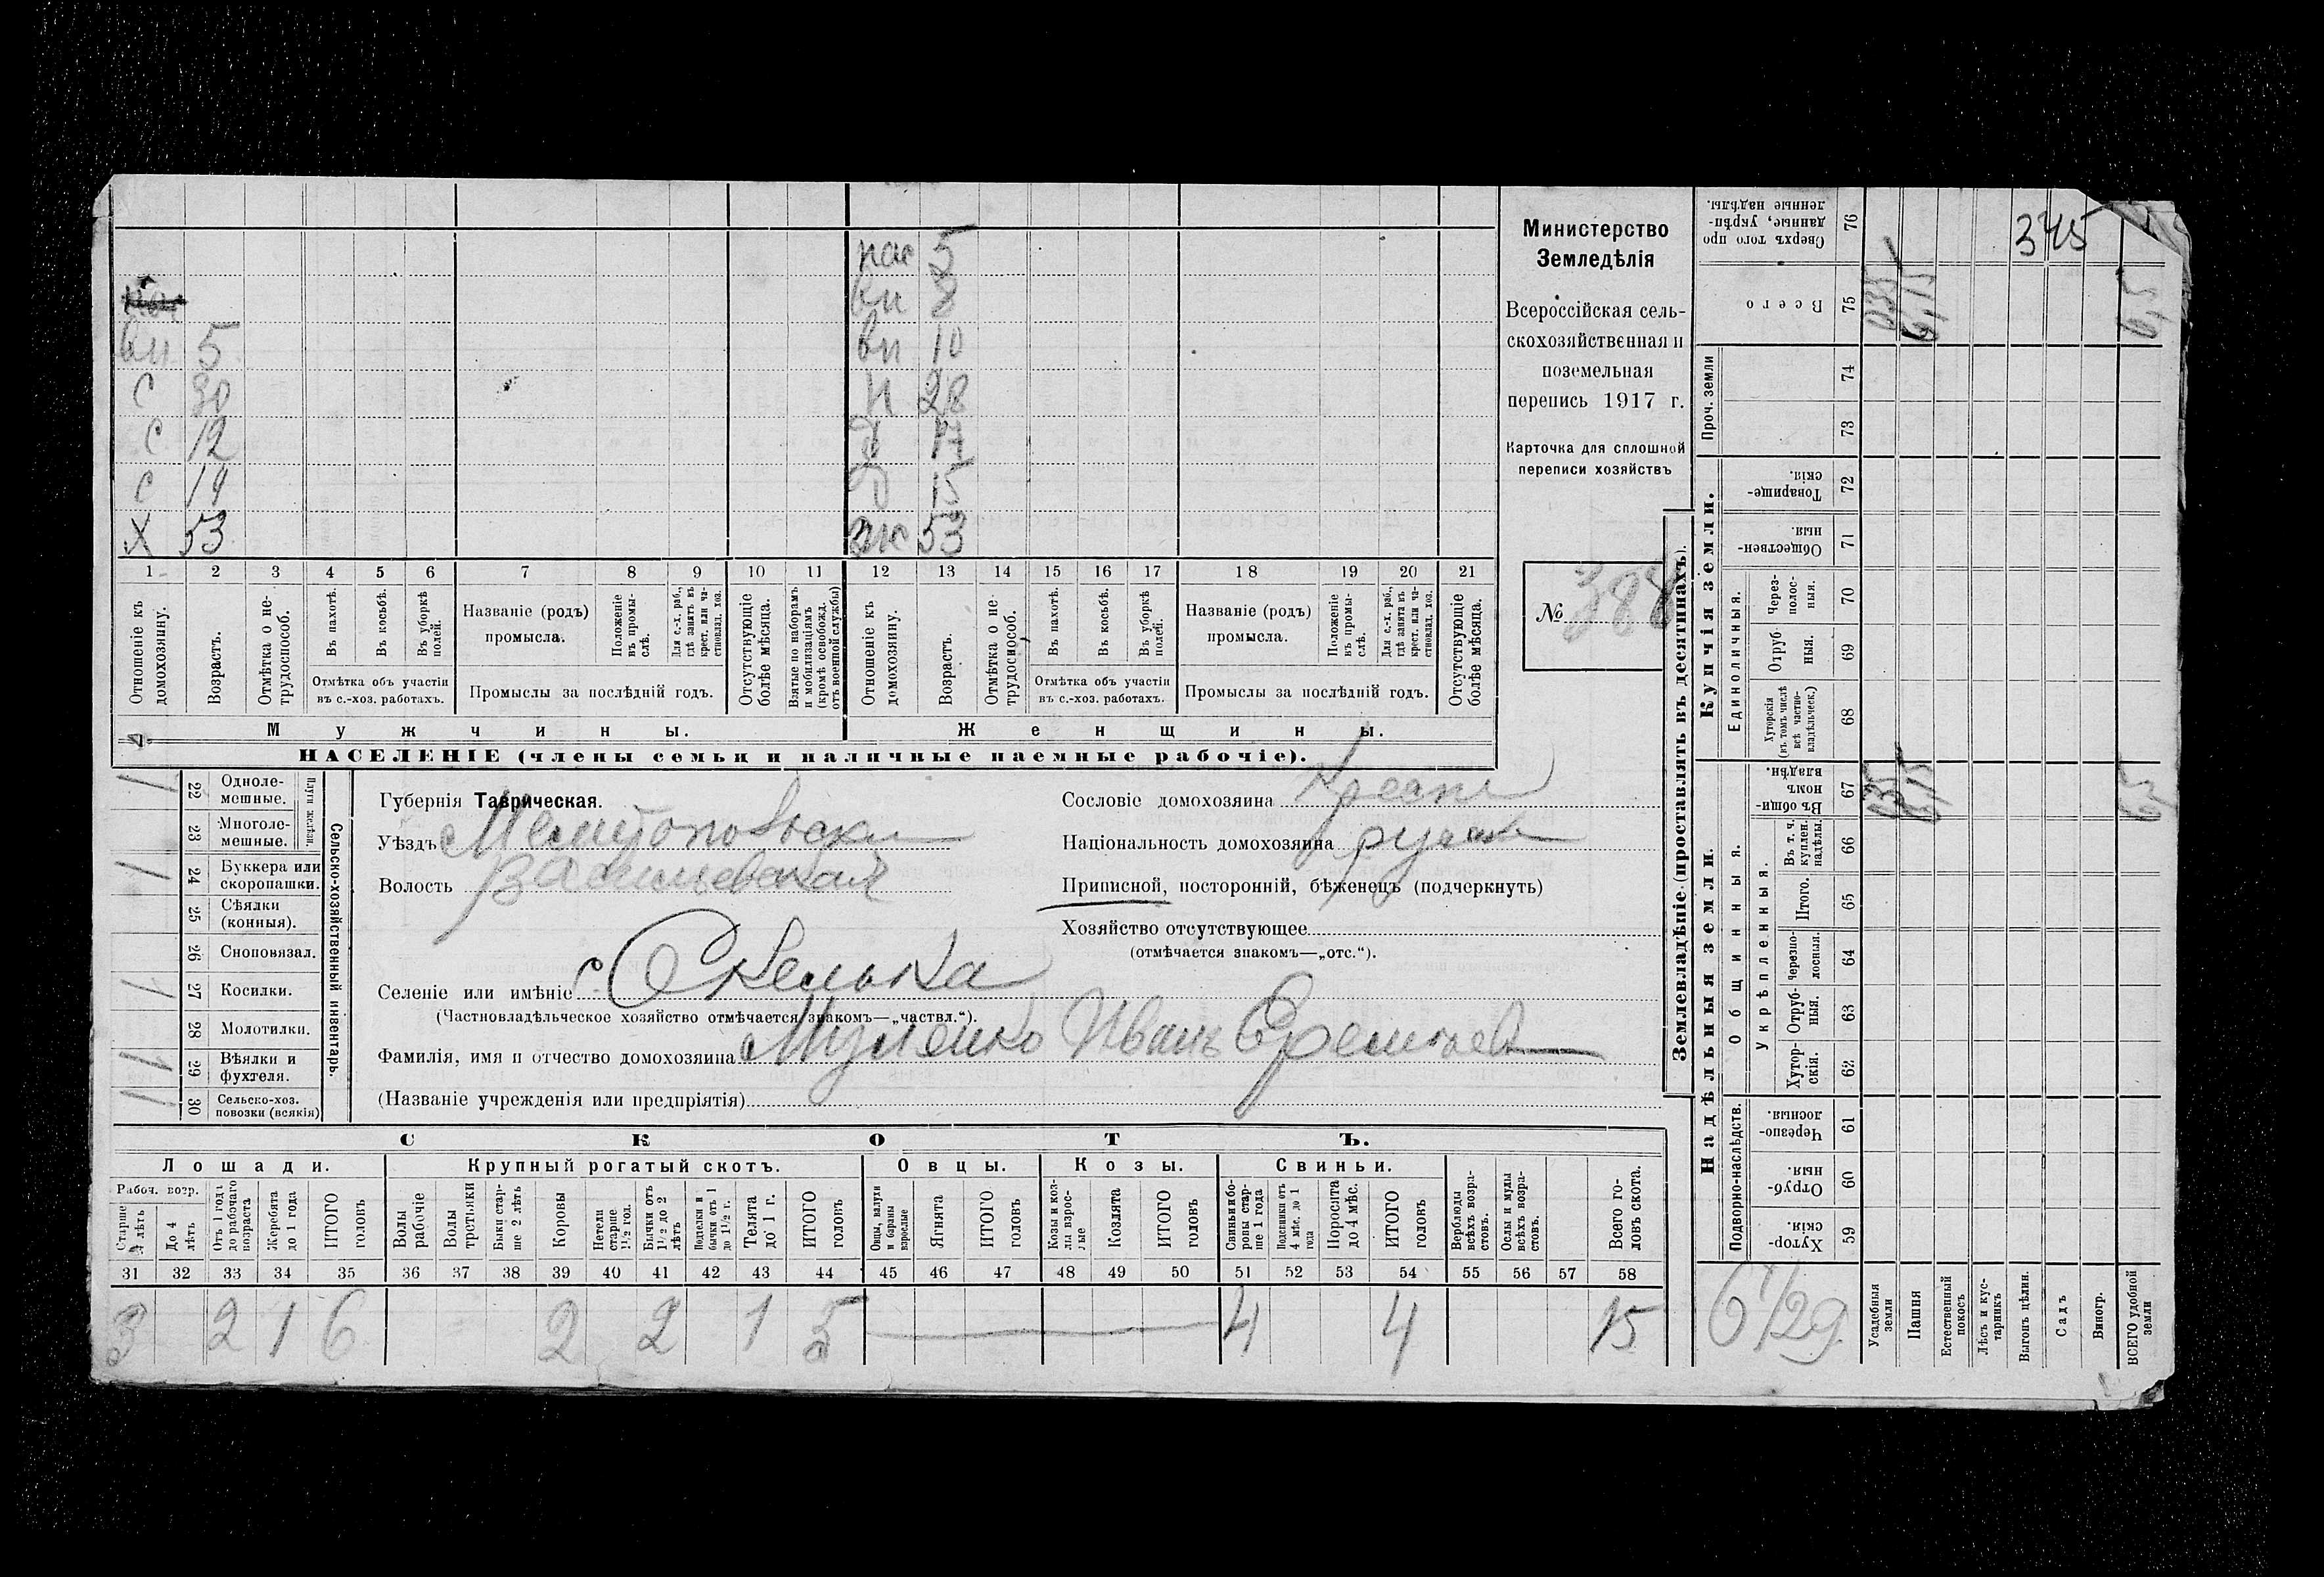 пас 5
вн 8
вн 5
вн 10
С 30
н 28
С 12
д 17
С 14
д 15
Х 53
ж 53
1 2 3 4 5 6 7 8 9 10 11 12 13 14 15 16 17 18 19 20 21
Отношеніе къ домохозяину.
Возрастъ.
Отмѣтка о нетрудоспособ.
Въ пахотѣ.
Въ косьбѣ.
Въ уборкѣ полей.
Отмѣтка объ участіи въ с.-хоз. работахъ.
Названіе (родъ) промысла.
Положеніе въ промыслѣ.
Для с.-х. раб., гдѣ занятъ въ крест. или частновлад. хоз.
Промыслы за послѣдній годъ.
Отсутствующіе болѣе мѣсяца.
Взятые по наборамъ и мобилизаціямъ (кромѣ освобожд. отъ военной службы)
Отношеніе къ домохозяину.
Возрастъ.
Отмѣтка о нетрудоспособ.
Въ пахотѣ.
Въ косьбѣ.
Въ уборкѣ полей.
Отмѣтка объ участіи въ с.-хоз. работахъ.
Названіе (родъ) промысла.
Положеніе въ промыслѣ.
Для с.-х. раб., гдѣ занята въ крест. или частновлад. хоз.
Промыслы за послѣдній годъ.
Отсутствующіе болѣе мѣсяца.
Мужчины.
Женщины.
НАСЕЛЕНІЕ (члены семьи и наличные наемные рабочіе).
Министерство
Земледѣлія
Всероссійская сель-
скохозяйственная и
поземельная
перепись 1917 г.
Карточка для сплошной
переписи хозяйствъ
№ 388
1 22 Одноле-мешные.
23 Многоле-мешные.
Плуги желѣзн.
1 24 Буккера или скоропашки.
25 Сѣялки (конныя).
26 Сноповязал.
1 27 Косилки.
28 Молотилки.
1 29 Вѣялки и фухтеля.
30 Сельско-хоз. повозки (всякія)
Сельско-хозяйственный инвентарь.
Губернія Таврическая.
Уѣздъ Мелитопольскій
Волость Васильевская
Селеніе или имѣніе с Скелька
(Частновладѣльческое хозяйство отмѣчается знакомъ—„частвл.“).
Фамилія, имя и отчество домохозяина Музленко Иванъ Еремѣев
(Названіе учрежденія или предпріятія)
Сословіе домохозяина Крест
Національность домохозяина русск
Приписной, посторонній, бѣженецъ (подчеркнуть)
Хозяйство отсутствующее
(отмѣчается знакомъ—„отс.“).
СКОТЪ.
Лошади.
Крупный рогатый скотъ.
Овцы.
Козы.
Свиньи.
Рабоч. возр.
Старше 4 лѣтъ
До 4 лѣтъ
Отъ 1 года до рабочаго возраста
Жеребята до 1 года
ИТОГО головъ
Волы рабочіе
Волы третьяки
Быки старше 2 лѣтъ
Коровы
Нетели старше 1½ год.
Бычки отъ 1½ до 2 лѣтъ
Подтелки и бычки отъ 1 до 1½ г.
Телята до 1 г.
ИТОГО головъ
Овцы, валухи и бараны взрослые
Ягнята
ИТОГО головъ
Козы и козлы взрослые
Козлята
ИТОГО головъ
Свиньи и боровы старше 1 года
Подсвинки отъ 4 мѣс. до 1 года
Поросята до 4 мѣс.
ИТОГО головъ
Верблюды всѣхъ возрастовъ.
Ослы и мулы всѣхъ возрастовъ.
Всего головъ скота.
31 32 33 34 35 36 37 38 39 40 41 42 43 44 45 46 47 48 49 50 51 52 53 54 55 56 57 58
3 2 1 6 2 2 1 5 4 4 15
Землевладѣніе (проставлять въ десятинахъ).
Надѣльныя земли.
Купчія земли.
Проч. земли
Подворно-наслѣдств.
Общинныя.
Укрѣпленныя.
Единоличныя.
Сверхъ того проданные, укрѣпленные надѣлы. 76
Всего 75
74
73
Товарищескія. 72
Общественныя 71
Черезполосныя. 70
Отрубныя. 69
Хуторскія (въ томъ числѣ всѣ частновладѣльческ.) 68
Въ общинномъ владѣн. 67
Въ т. ч. куплен. надѣлы. 66
Итого. 65
Черезполосныя. 64
Отрубныя. 63
Хуторскія. 62
Черезполосныя. 61
Отрубныя 60
Хуторскія. 59
345
035
6,15
6,5
035
6,15
6,5
6 1/29
Усадебныя земли
Пашня
Естественный покосъ
Лѣсъ и кустарникъ
Выгонъ цѣлин.
Садъ
Виногр.
ВСЕГО удобной земли